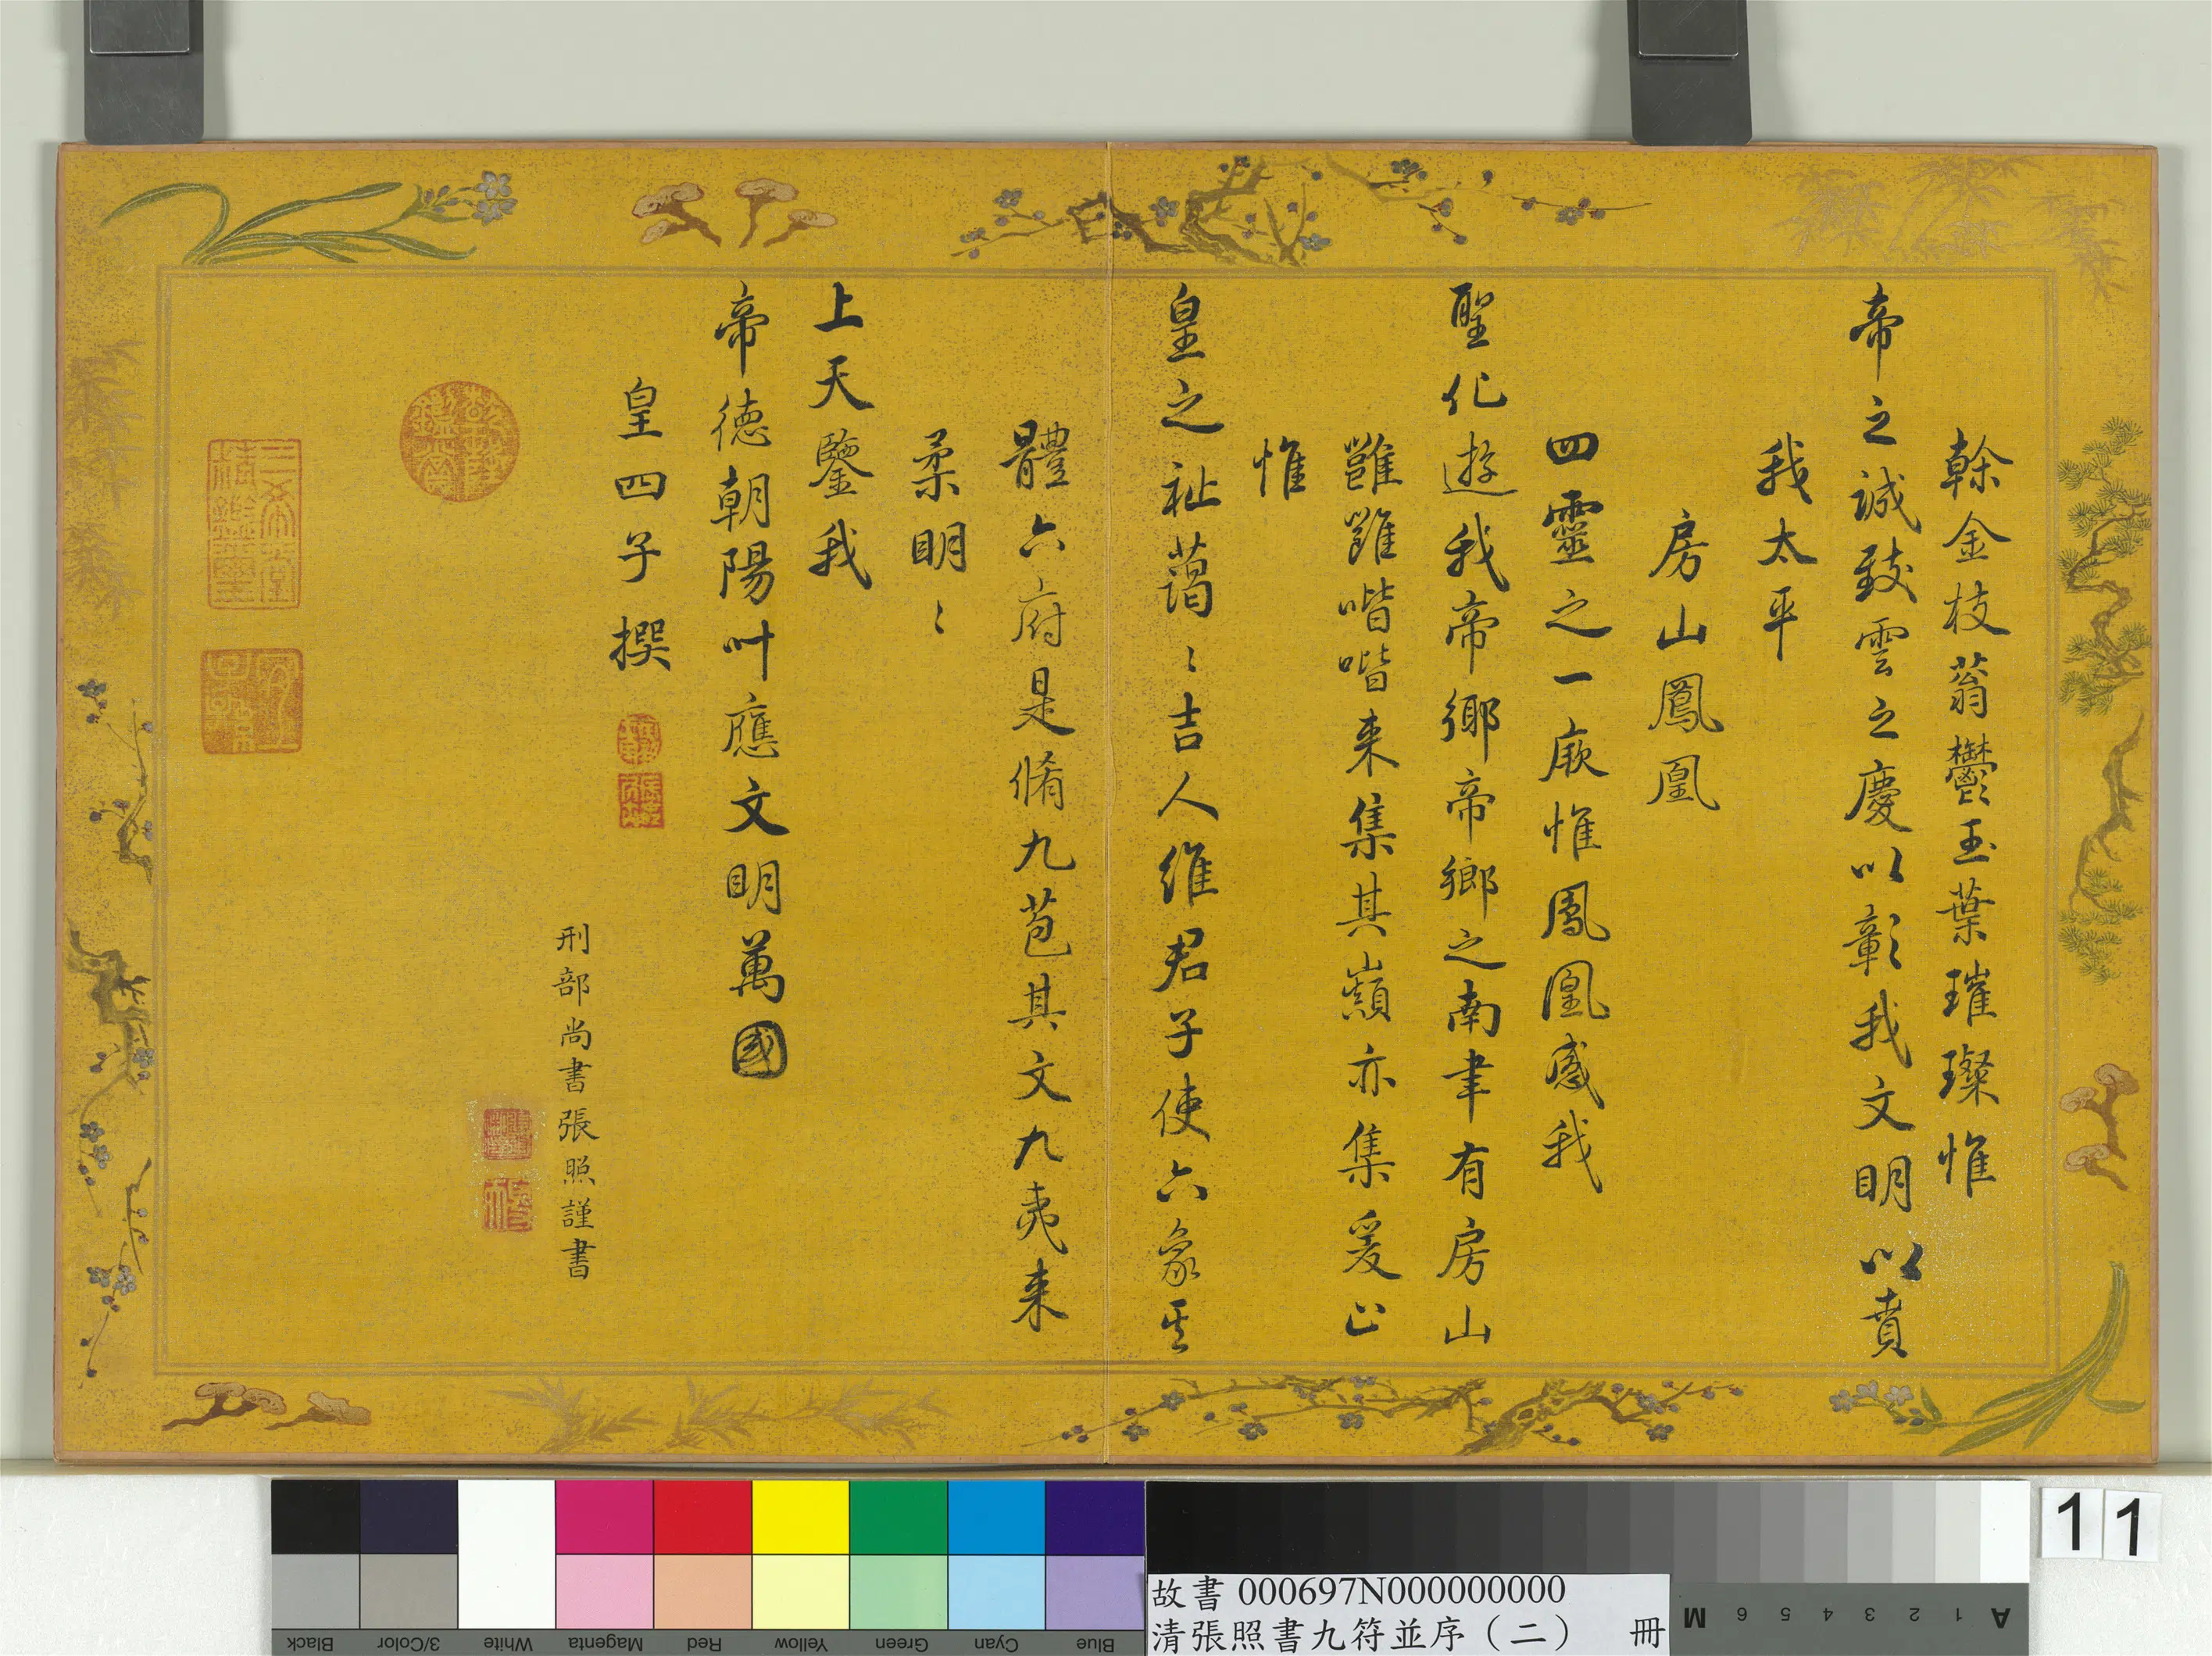 榦金枝蓊鬱玉葉璀璨惟
帝之誠致雲之慶以彰我文明以賁
我太平
房山鳳凰
四靈之一厥惟鳳凰感我
聖化遊我帝鄉帝鄉之南聿有房山
雝雝喈喈来集其巔亦集爰止
惟
皇之祉藹〻吉人維君子使六象其
體六府是脩九苞其文九夷来
柔明〻
上天鑒我
帝德朝陽叶應文明萬國
皇四子撰
刑部尚書張照謹書
三希堂精鑑璽
宜子孫
乾隆鑑賞
Black
3/Color
White
Magenta
Red
Yellow
Green
Cyan
Blue
故書 000697N000000000
清張照書九符並序（二） 冊
A 1 2 3 4 5 6 M
11